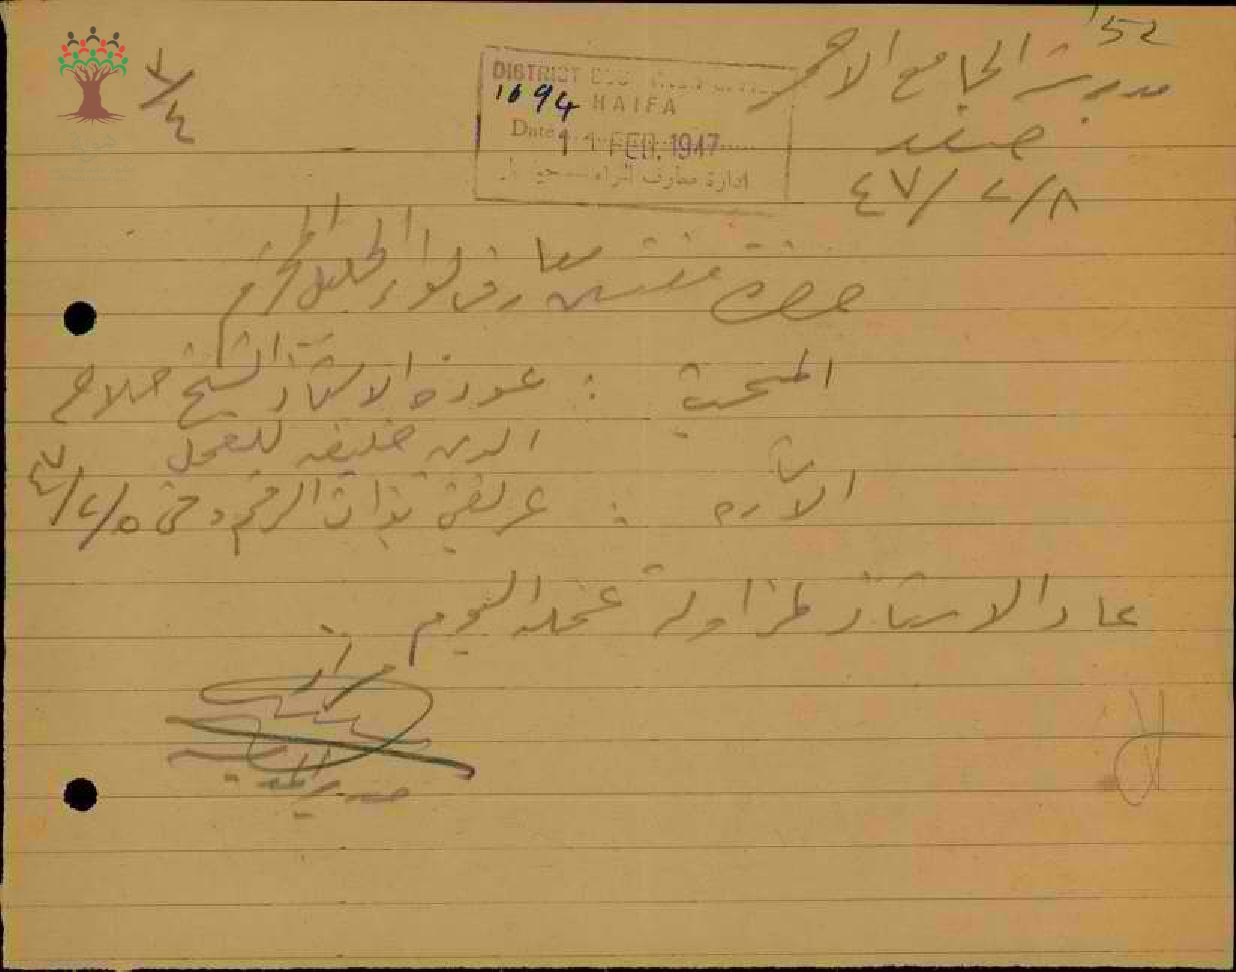 52
مدرسة الجامع الاحمر
صفد
٤٧/٢/٨
١/٤
DISTRICT
1694 HAIFA
Date 11 FEB. 1947
ادارة معارف لواء حيفا
حضرة مفتش معارف لواء الجليل المحترم
المبحث : عودة الاستاذ الشيخ صلاح
الدين خليفه للعمل
الاشارة : عريضتي بذات الرقم وفي ٤٧/٢/٥
عاد الاستاذ لمزاولة عمله اليوم
مدير المدرسة